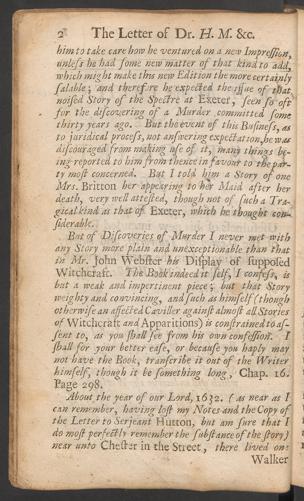 2 The Letter of Dr. H. M. &c.
him to take care how he ventured on a new Impression,
unless he had some new matter of that kind to add,
which might make this new Edition the more certainly
salable; and therefore he expected the issue of that
noised Story of the Spectre at Exeter, seen so oft
for the discovering of a Murder committed some
thirty years ago. But the event of this Business, as
to juridical process, not answering expectation, he was
discouraged from making use of it, many things be-
ing reported to him from thence in favour to the par-
ty most concerned. But I told him a Story of one
Mrs. Britton her appearing to her Maid after her
death, very well attested, though not of such a Tra-
gical kind as that of Exeter, which he thought con-
siderable.
But of Discoveries of Murder I never met with
any Story more plain and unexceptionable than that
in Mr. John Webster his Display of supposed
Witchcraft. The Book indeed it self, I confess, is
but a weak and impertinent piece; but that Story
weighty and convincing, and such as himself (though
otherwise an affected Caviller against almost all Stories
of Witchcraft and Apparitions) is constrained to as-
sent to, as you shall see from his own confession. I
shall for your better ease, or because you haply may
not have the Book, transcribe it out of the Writer
himself, though it be something long, Chap. 16.
Page 298.
About the year of our Lord, 1632. (as near as I
can remember, having lost my Notes and the Copy of
the Letter to Serjeant Hutton, but am sure that I
do most perfectly remember the substance of the story)
near unto Chester in the Street, there lived one
Walker